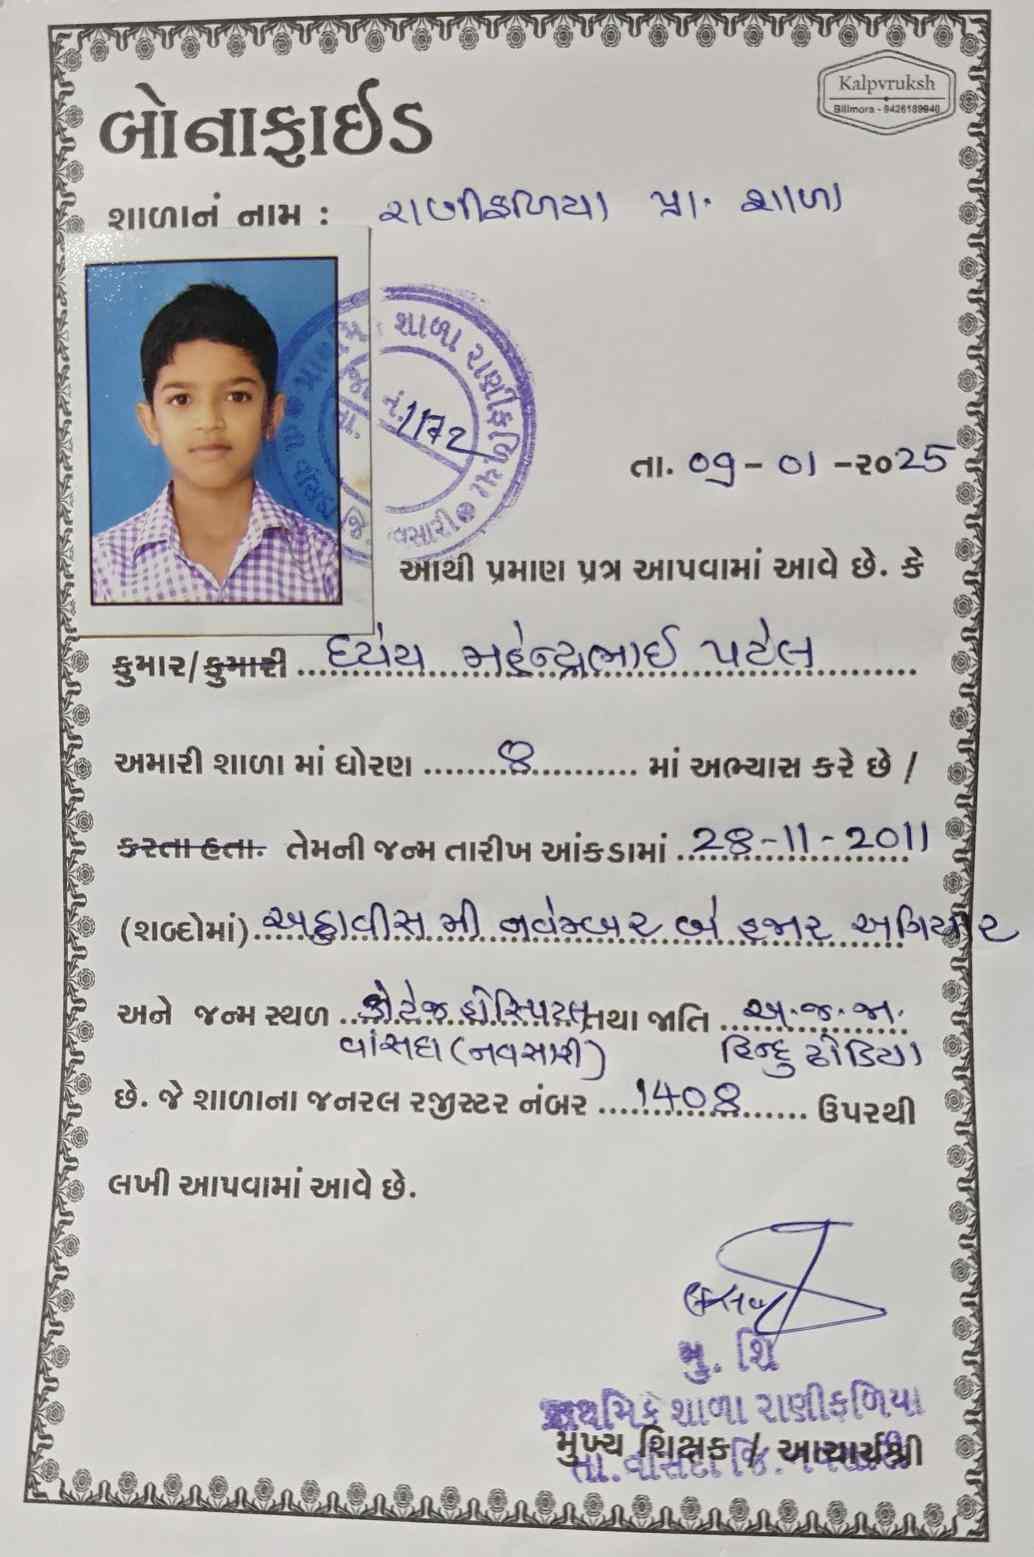 Kalpvruksh
Bilimora - 9426189940
બોનાફાઈડ
શાળાનું નામ : રાણીફળિયા પ્રા. શાળા
શાળા રાણીફળિયા
નં. 1172
તા. વાંસદા જિ. નવસારી
તા. 09-01-૨૦25
આથી પ્રમાણ પત્ર આપવામાં આવે છે. કે
કુમાર/કુમારી ધ્યેય મહેન્દ્રભાઈ પટેલ
અમારી શાળા માં ધોરણ ........8.......... માં અભ્યાસ કરે છે /
કરતા હતા. તેમની જન્મ તારીખ આંકડામાં 28-11-2011
(શબ્દોમાં) અઠ્ઠાવીસ મી નવેમ્બર બે હજાર અગિયાર
અને જન્મ સ્થળ કોટેજ હોસ્પિટલ તથા જાતિ અ.જ.જા.
વાંસદા (નવસારી) હિન્દુ ઢોડિયા
છે. જે શાળાના જનરલ રજીસ્ટર નંબર 1408 ઉપરથી
લખી આપવામાં આવે છે.
મુ. શિ
પ્રાથમિક શાળા રાણીફળિયા
મુખ્ય શિક્ષક / આચાર્યશ્રી
તા. વાંસદા જિ. નવસારી